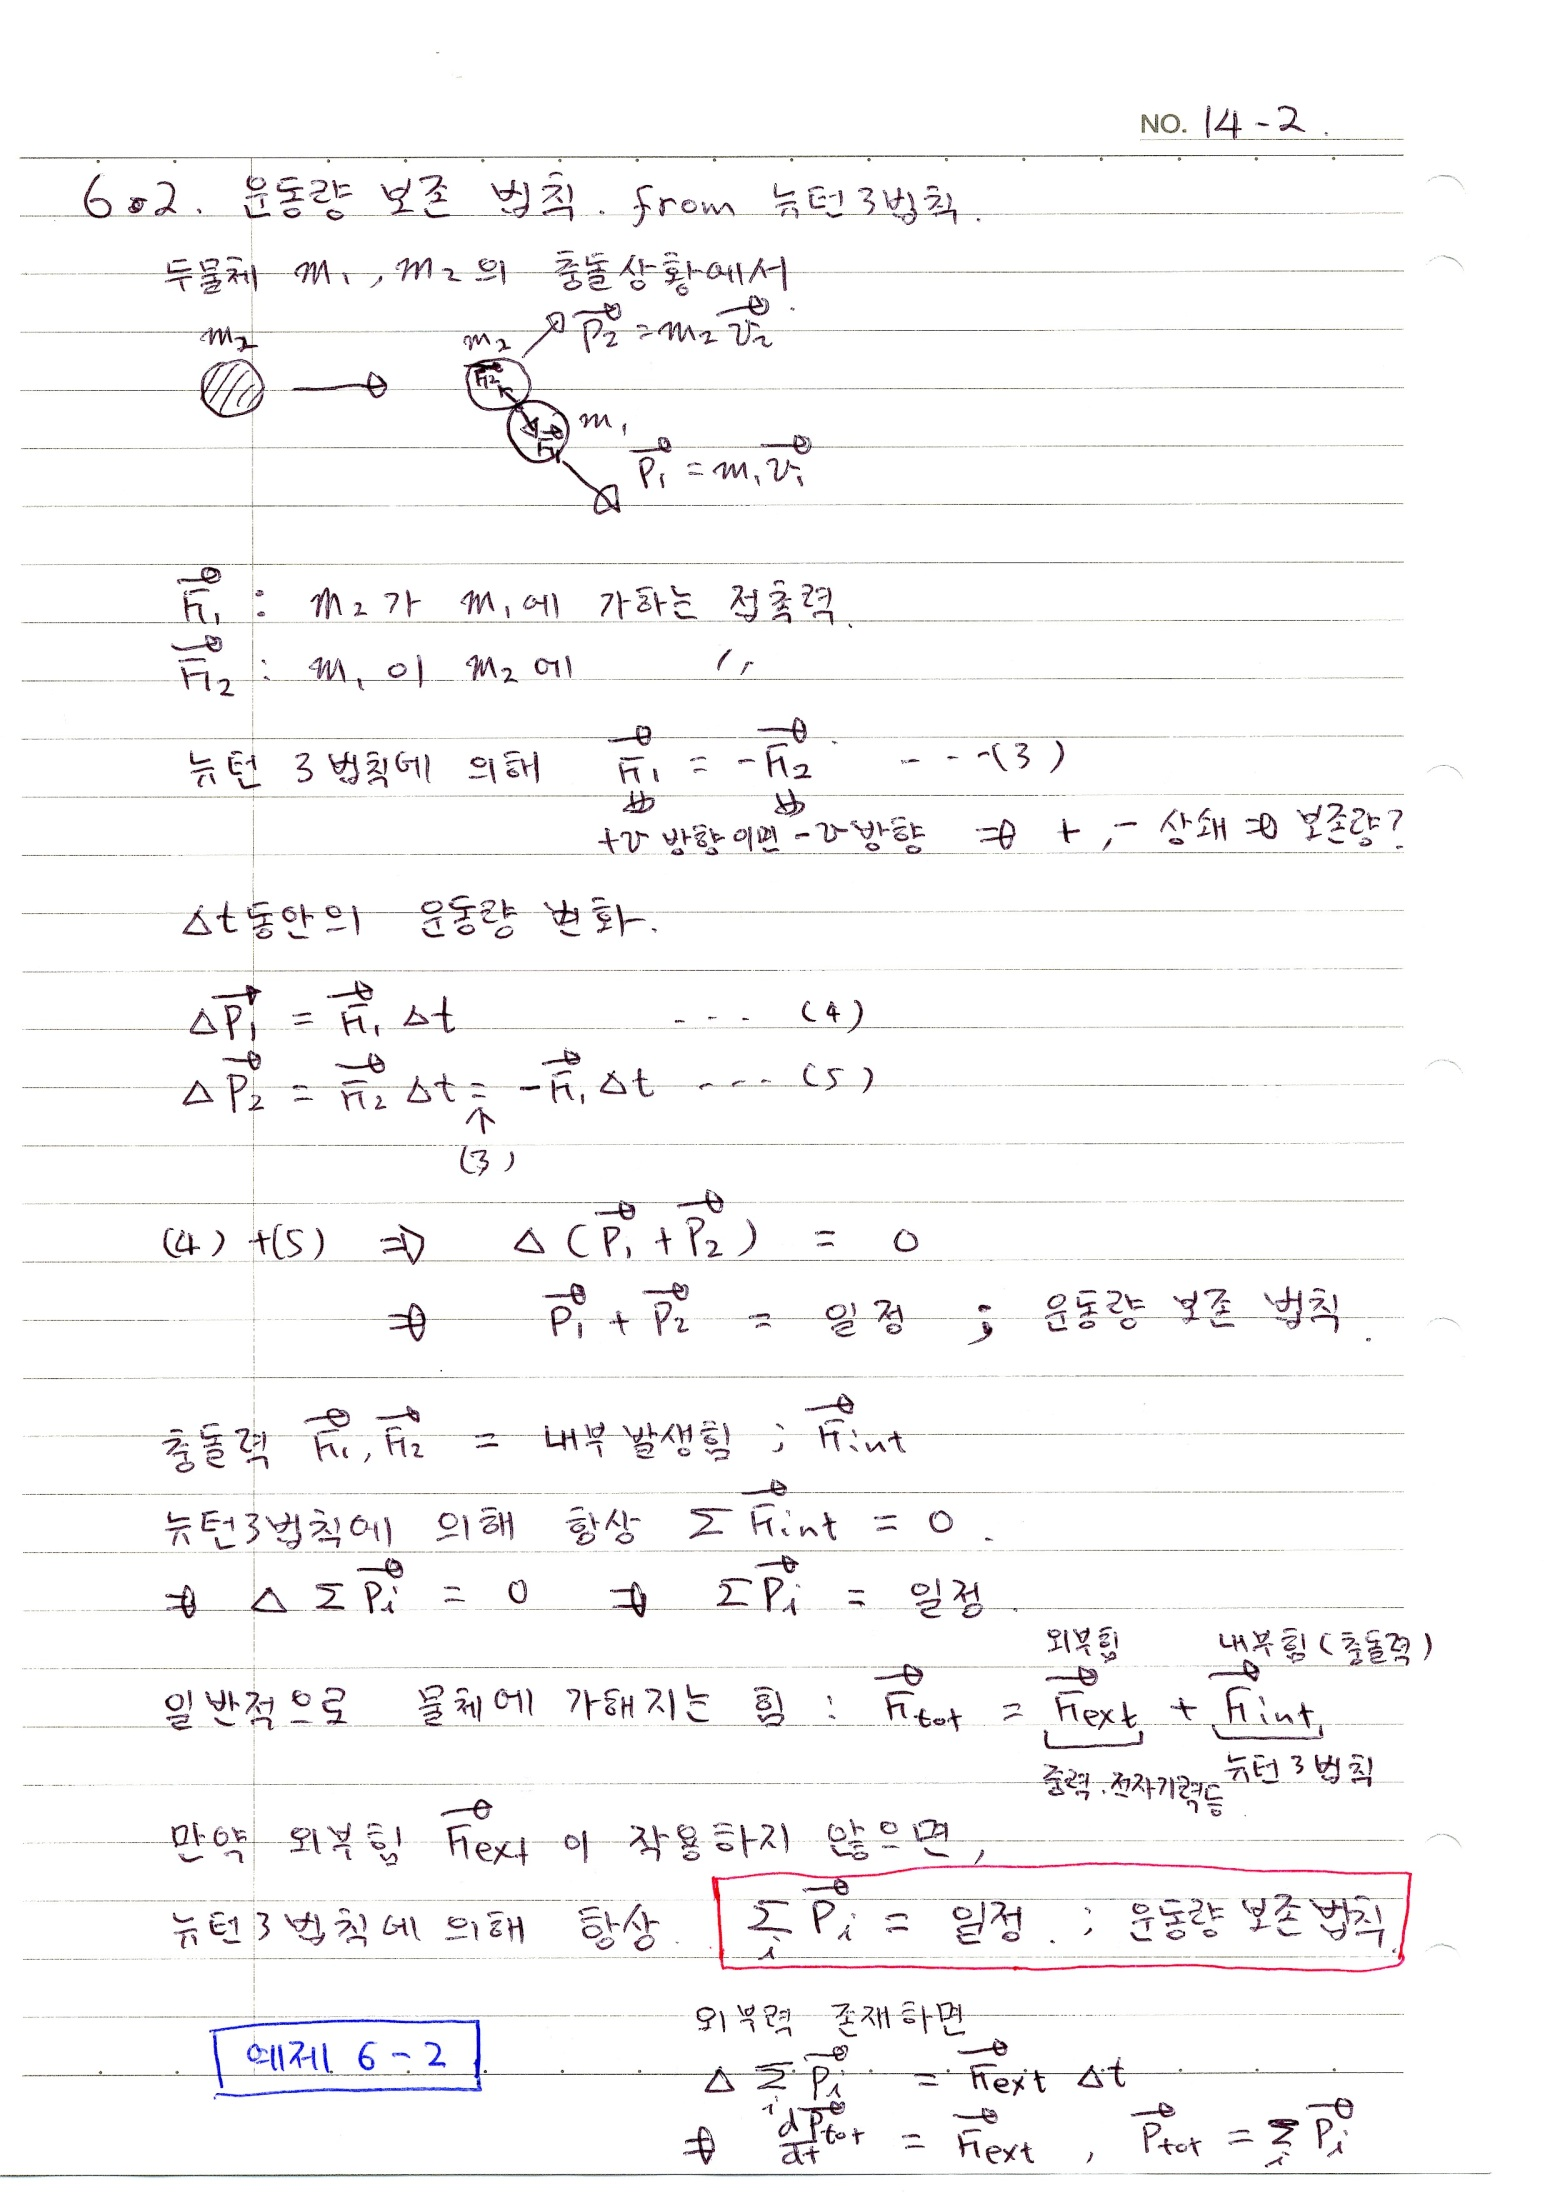 NO. 14-2.
6.2. 운동량 보존 법칙. from 뉴턴3법칙.
두물체 m₁, m₂의 충돌상황에서
m₂
m₂ P⃗₂ = m₂ v⃗₂
F⃗₂
F⃗₁ m₁
P⃗₁ = m₁ v⃗₁
F⃗₁ : m₂가 m₁에 가하는 접촉력.
F⃗₂ : m₁이 m₂에 〃
뉴턴 3법칙에 의해 F⃗₁ = -F⃗₂ ----(3)
+v 방향이면 -v방향 ⇒ +, - 상쇄 ⇒ 보존량?
Δt동안의 운동량 변화.
ΔP⃗₁ = F⃗₁ Δt --- (4)
ΔP⃗₂ = F⃗₂ Δt = -F⃗₁ Δt ---- (5)
↑
(3)
(4) +(5) ⇒ Δ(P⃗₁ + P⃗₂) = 0
⇒ P⃗₁ + P⃗₂ = 일정 ; 운동량 보존 법칙.
충돌력 F⃗₁, F⃗₂ = 내부 발생힘 ; F⃗int
뉴턴3법칙에 의해 항상 Σ F⃗int = 0.
⇒ Δ Σ P⃗i = 0 ⇒ Σ P⃗i = 일정.
외부힘 내부힘(충돌력)
일반적으로 물체에 가해지는 힘 : F⃗tot = F⃗ext + F⃗int
중력.전자기력등 뉴턴3법칙
만약 외부힘 F⃗ext 이 작용하지 않으면,
뉴턴3법칙에 의해 항상. Σi P⃗i = 일정. ; 운동량 보존법칙.
외부력 존재하면
예제 6-2
Δ Σi P⃗i = F⃗ext Δt
⇒ dP⃗tot/dt = F⃗ext , P⃗tot = Σi P⃗i